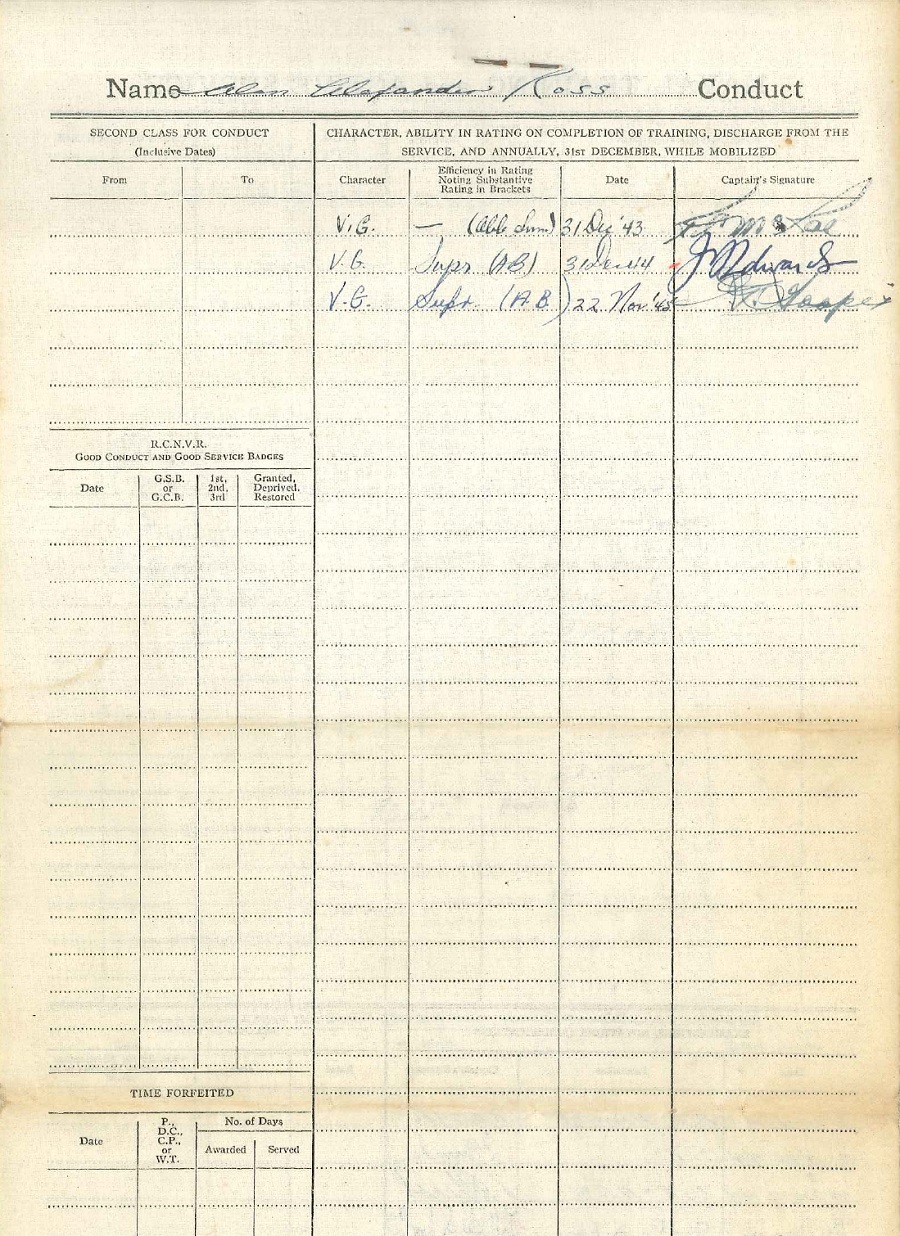 Name Alan Alexander Ross Conduct
SECOND CLASS FOR CONDUCT
(Inclusive Dates)
From To
CHARACTER, ABILITY IN RATING ON COMPLETION OF TRAINING, DISCHARGE FROM THE
SERVICE, AND ANNUALLY, 31ST DECEMBER, WHILE MOBILIZED
Character
Efficiency in Rating
Noting Substantive
Rating in Brackets
Date
Captain's Signature
V.G. — 31 Dec '43
V.G. Supr (AB) 31 Dec 44 Edwards
V.G. Supr. (A.B.) 22 Nov '45
R.C.N.V.R.
GOOD CONDUCT AND GOOD SERVICE BADGES
Date
G.S.B.
or
G.C.B.
1st,
2nd,
3rd
Granted,
Deprived,
Restored
TIME FORFEITED
Date
P.,
D.C.,
C.P.,
or
W.T.
No. of Days
Awarded Served